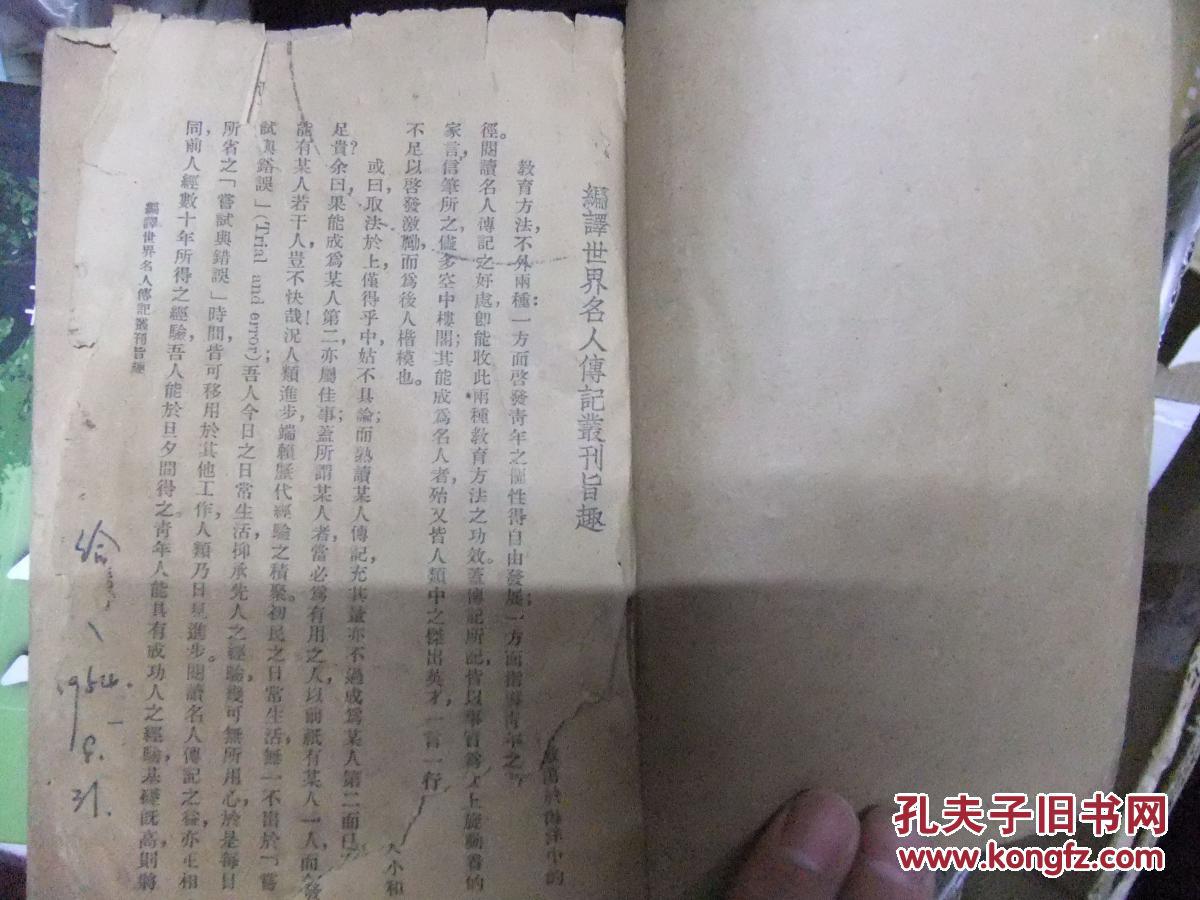 編譯世界名人傳記叢刊旨趣
教育方法，不外兩種：一方面啓發靑年之個性得自由發展；一方面指導靑年之
徑。閱讀名人傳記之好處，卽能收此兩種教育方法之功效。蓋傳記所記，皆以事實爲
家言，信筆所之，儘多空中樓閣；其能成爲名人者，殆又皆人類中之傑出英才，一言一行，
不足以啓發激勵，而爲後人楷模也。
或曰，取法於上，僅得乎中，姑不具論；而熟讀某人傳記，充其量亦不過成爲某人第二而已，
足貴？余曰，果能成爲某人第二，亦屬佳事；蓋所謂某人者，當必爲有用之人，以前祇有某人一人，而今發
能有某人若干人，豈不快哉！況人類進步，端賴歷代經驗之積聚。初民之日常生活，無一不出於「嘗
試與錯誤」(Trial and error)；吾人今日之日常生活，抑承先人之經驗，幾可無所用心，於是每日
所省之「嘗試與錯誤」時間，皆可移用於其他工作，人類乃日見進步。閱讀名人傳記之益，亦正相
同，前人經數十年所得之經驗，吾人能於旦夕間得之。靑年人能具有成功人之經驗，基礎旣高，則將
編譯世界名人傳記叢刊旨趣
1954.
8.
31.
孔夫子旧书网
www.kongfz.com